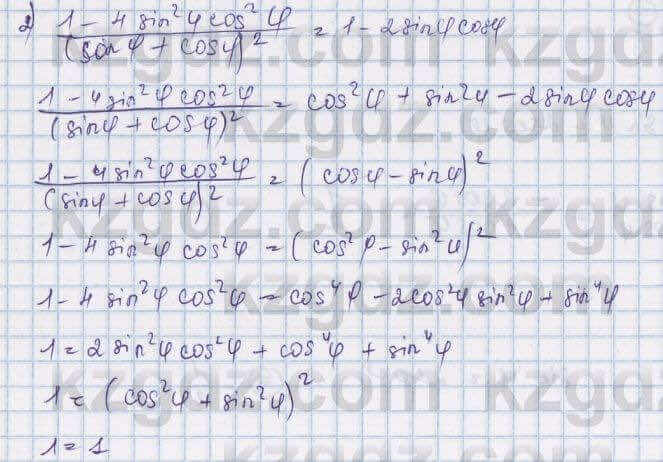 2) (1 - 4 sin²φ cos²φ)/(sinφ + cosφ)² = 1 - 2sinφ cosφ
(1 - 4sin²φ cos²φ)/(sinφ + cosφ)² = cos²φ + sin²φ - 2sinφ cosφ
(1 - 4sin²φ cos²φ)/(sinφ + cosφ)² = (cosφ - sinφ)²
1 - 4 sin²φ cos²φ = (cos²φ - sin²φ)²
1 - 4 sin²φ cos²φ = cos⁴φ - 2cos²φ sin²φ + sin⁴φ
1 = 2 sin²φ cos²φ + cos⁴φ + sin⁴φ
1 = (cos²φ + sin²φ)²
1 = 1
kzgdz.com